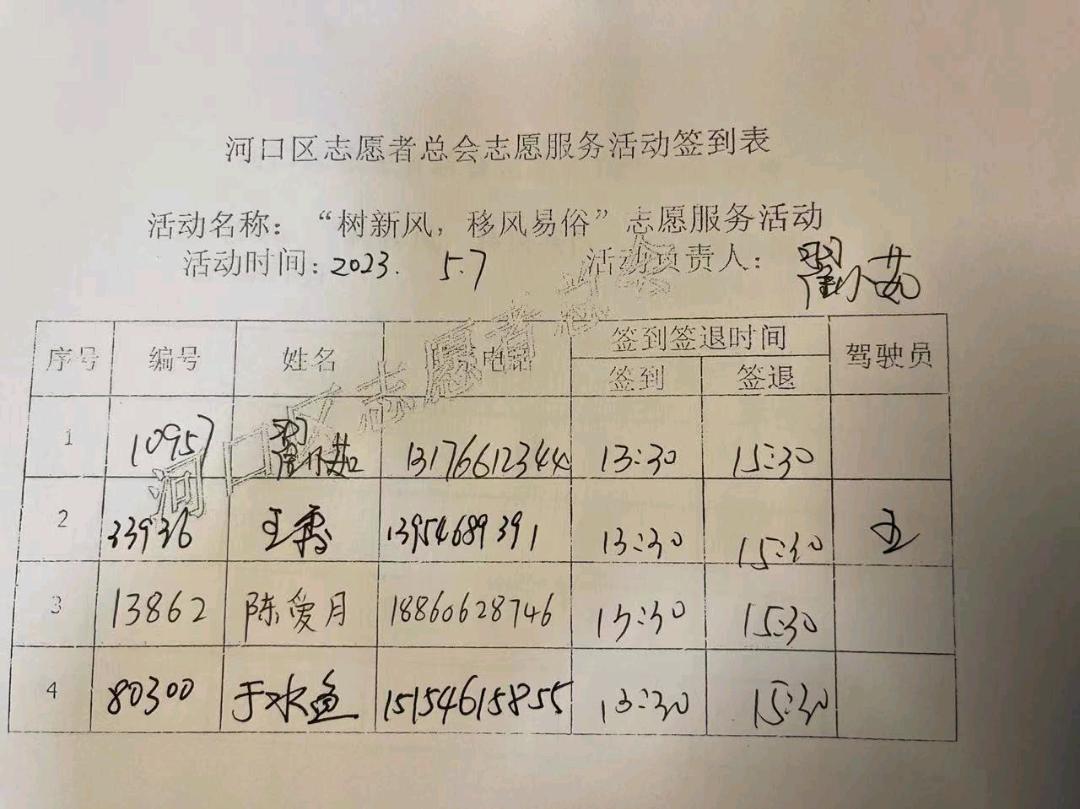 河口区志愿者总会志愿服务活动签到表
活动名称：“树新风，移风易俗”志愿服务活动
活动时间：2023. 5.7 活动负责人：翟小茹
序号 编号 姓名 电话 签到签退时间 驾驶员
签到 签退
1 10957 翟小茹 13176612344 13:30 15:30
2 33936 王秀 13954689391 13:30 15:30 王
3 13862 陈爱月 18860628746 13:30 15:30
4 80300 于水鱼 15154615855 13:30 15:30
河口区志愿者总会